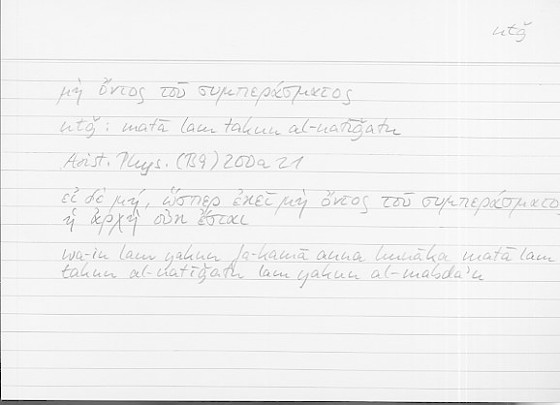 ntǧ
μὴ ὄντος τοῦ συμπεράσματος
ntǧ : matā lam takun al-natīǧatu
Arist. Phys. (B9) 200a21
εἰ δὲ μή, ὥσπερ ἐκεῖ μὴ ὄντος τοῦ συμπεράσματο
ἡ ἀρχὴ οὐκ ἔσται
wa-in lam yakun fa-kamā anna hunāka matā lam
takun al-natīǧatu lam yakun al-mabda'u